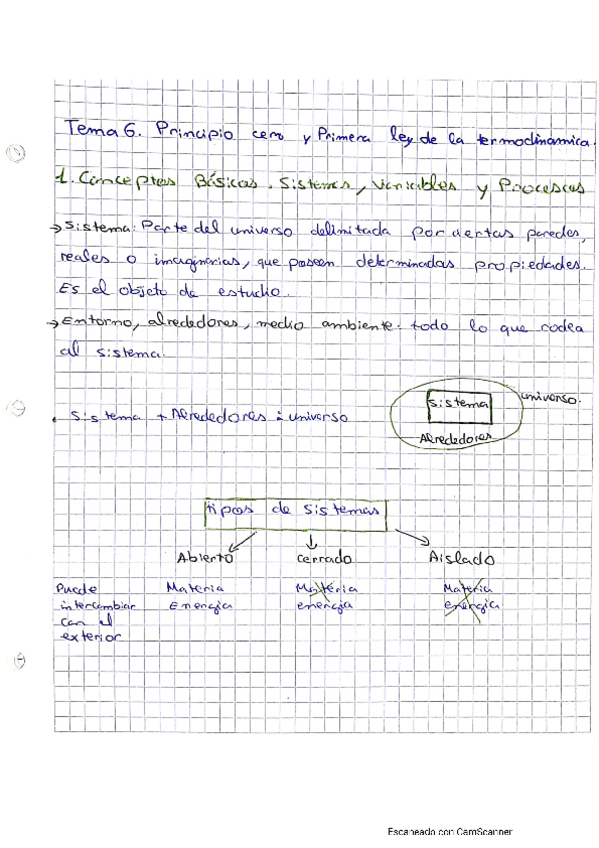 Tema 6. Principio cero y Primera ley de la termodinámica.
1. Conceptos Básicos. Sistemas, Variables y Procesos
→ Sistema: Parte del universo delimitada por ciertas paredes,
reales o imaginarias, que poseen determinadas propiedades.
Es el objeto de estudio.
→ Entorno, alrededores, medio ambiente: todo lo que rodea
al sistema.
Sistema
universo.
• Sistema + Alrededores = universo
Alrededores
tipos de sistemas
Abierto cerrado Aislado
Puede Materia Materia Materia
intercambiar Energia energia energia
con el
exterior
Escaneado con CamScanner